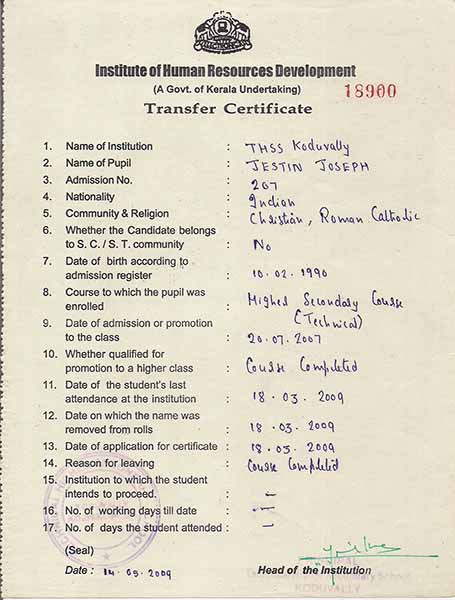 Institute of Human Resources Development
(A Govt. of Kerala Undertaking)
18900
Transfer Certificate
1. Name of Institution : THSS Koduvally
2. Name of Pupil : JESTIN JOSEPH
3. Admission No. : 267
4. Nationality : Indian
5. Community & Religion : Christian, Roman Catholic
6. Whether the Candidate belongs
to S. C. / S. T. community : No
7. Date of birth according to
admission register : 10.02.1990
8. Course to which the pupil was
enrolled : Higher Secondary Course
(Technical)
9. Date of admission or promotion
to the class : 20.07.2007
10. Whether qualified for
promotion to a higher class : Course Completed
11. Date of the student's last
attendance at the institution : 18.03.2009
12. Date on which the name was
removed from rolls : 18.03.2009
13. Date of application for certificate : 18.05.2009
14. Reason for leaving : Course Completed
15. Institution to which the student
intends to proceed. : --
16. No. of working days till date : --
17. No. of days the student attended : --
(Seal)
Date : 14.05.2009 Head of the Institution
KODUVALLY